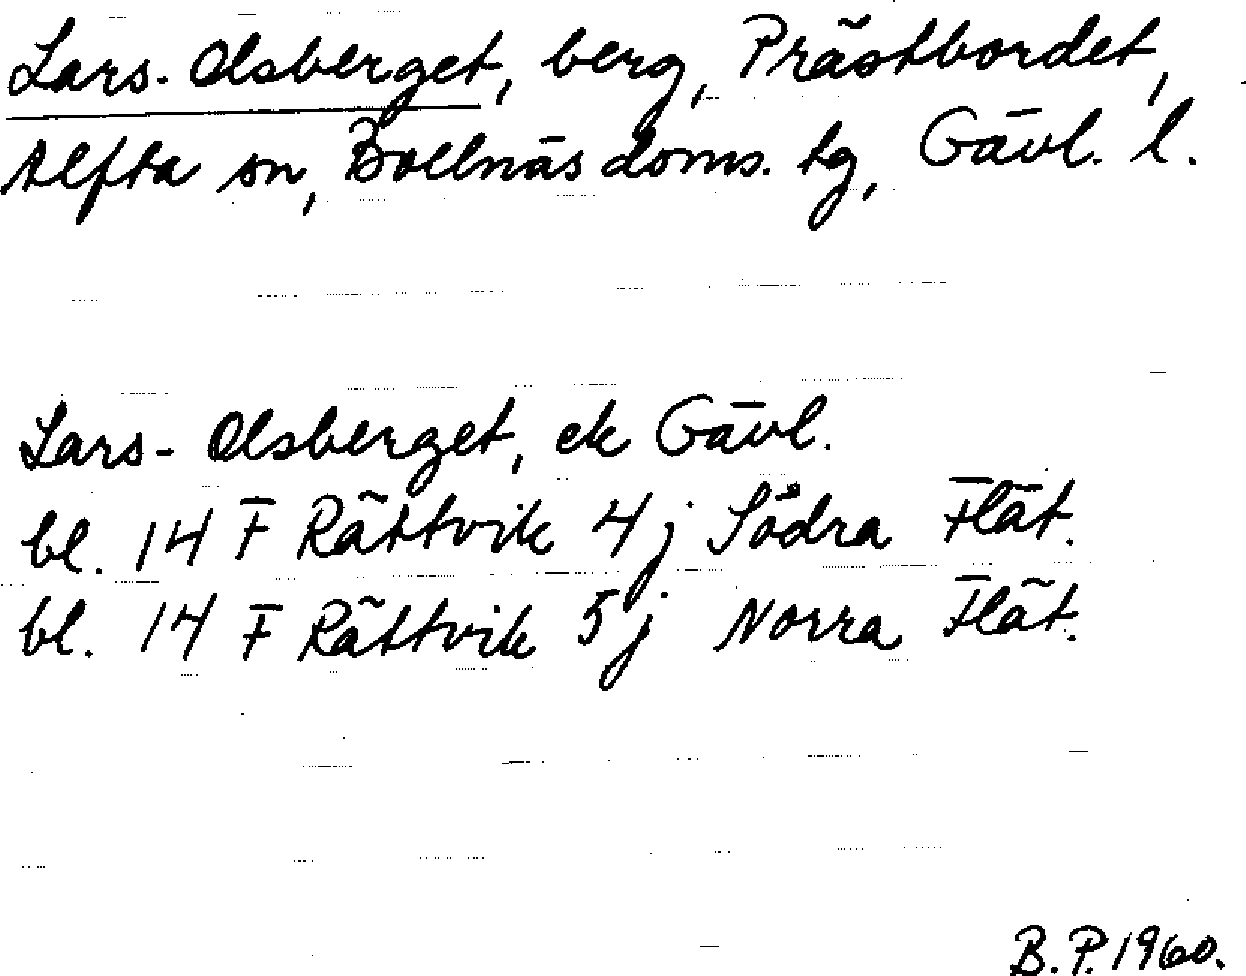 Lars-Olsberget, berg, Prästbordet,
Alfta sn, Bollnäs doms. tg, Gävl. l.
Lars-Olsberget, ek Gävl.
bl. 14 F Rättvik 4 j Södra Flät.
bl. 14 F Rättvik 5 j Norra Flät.
B. P. 1960.